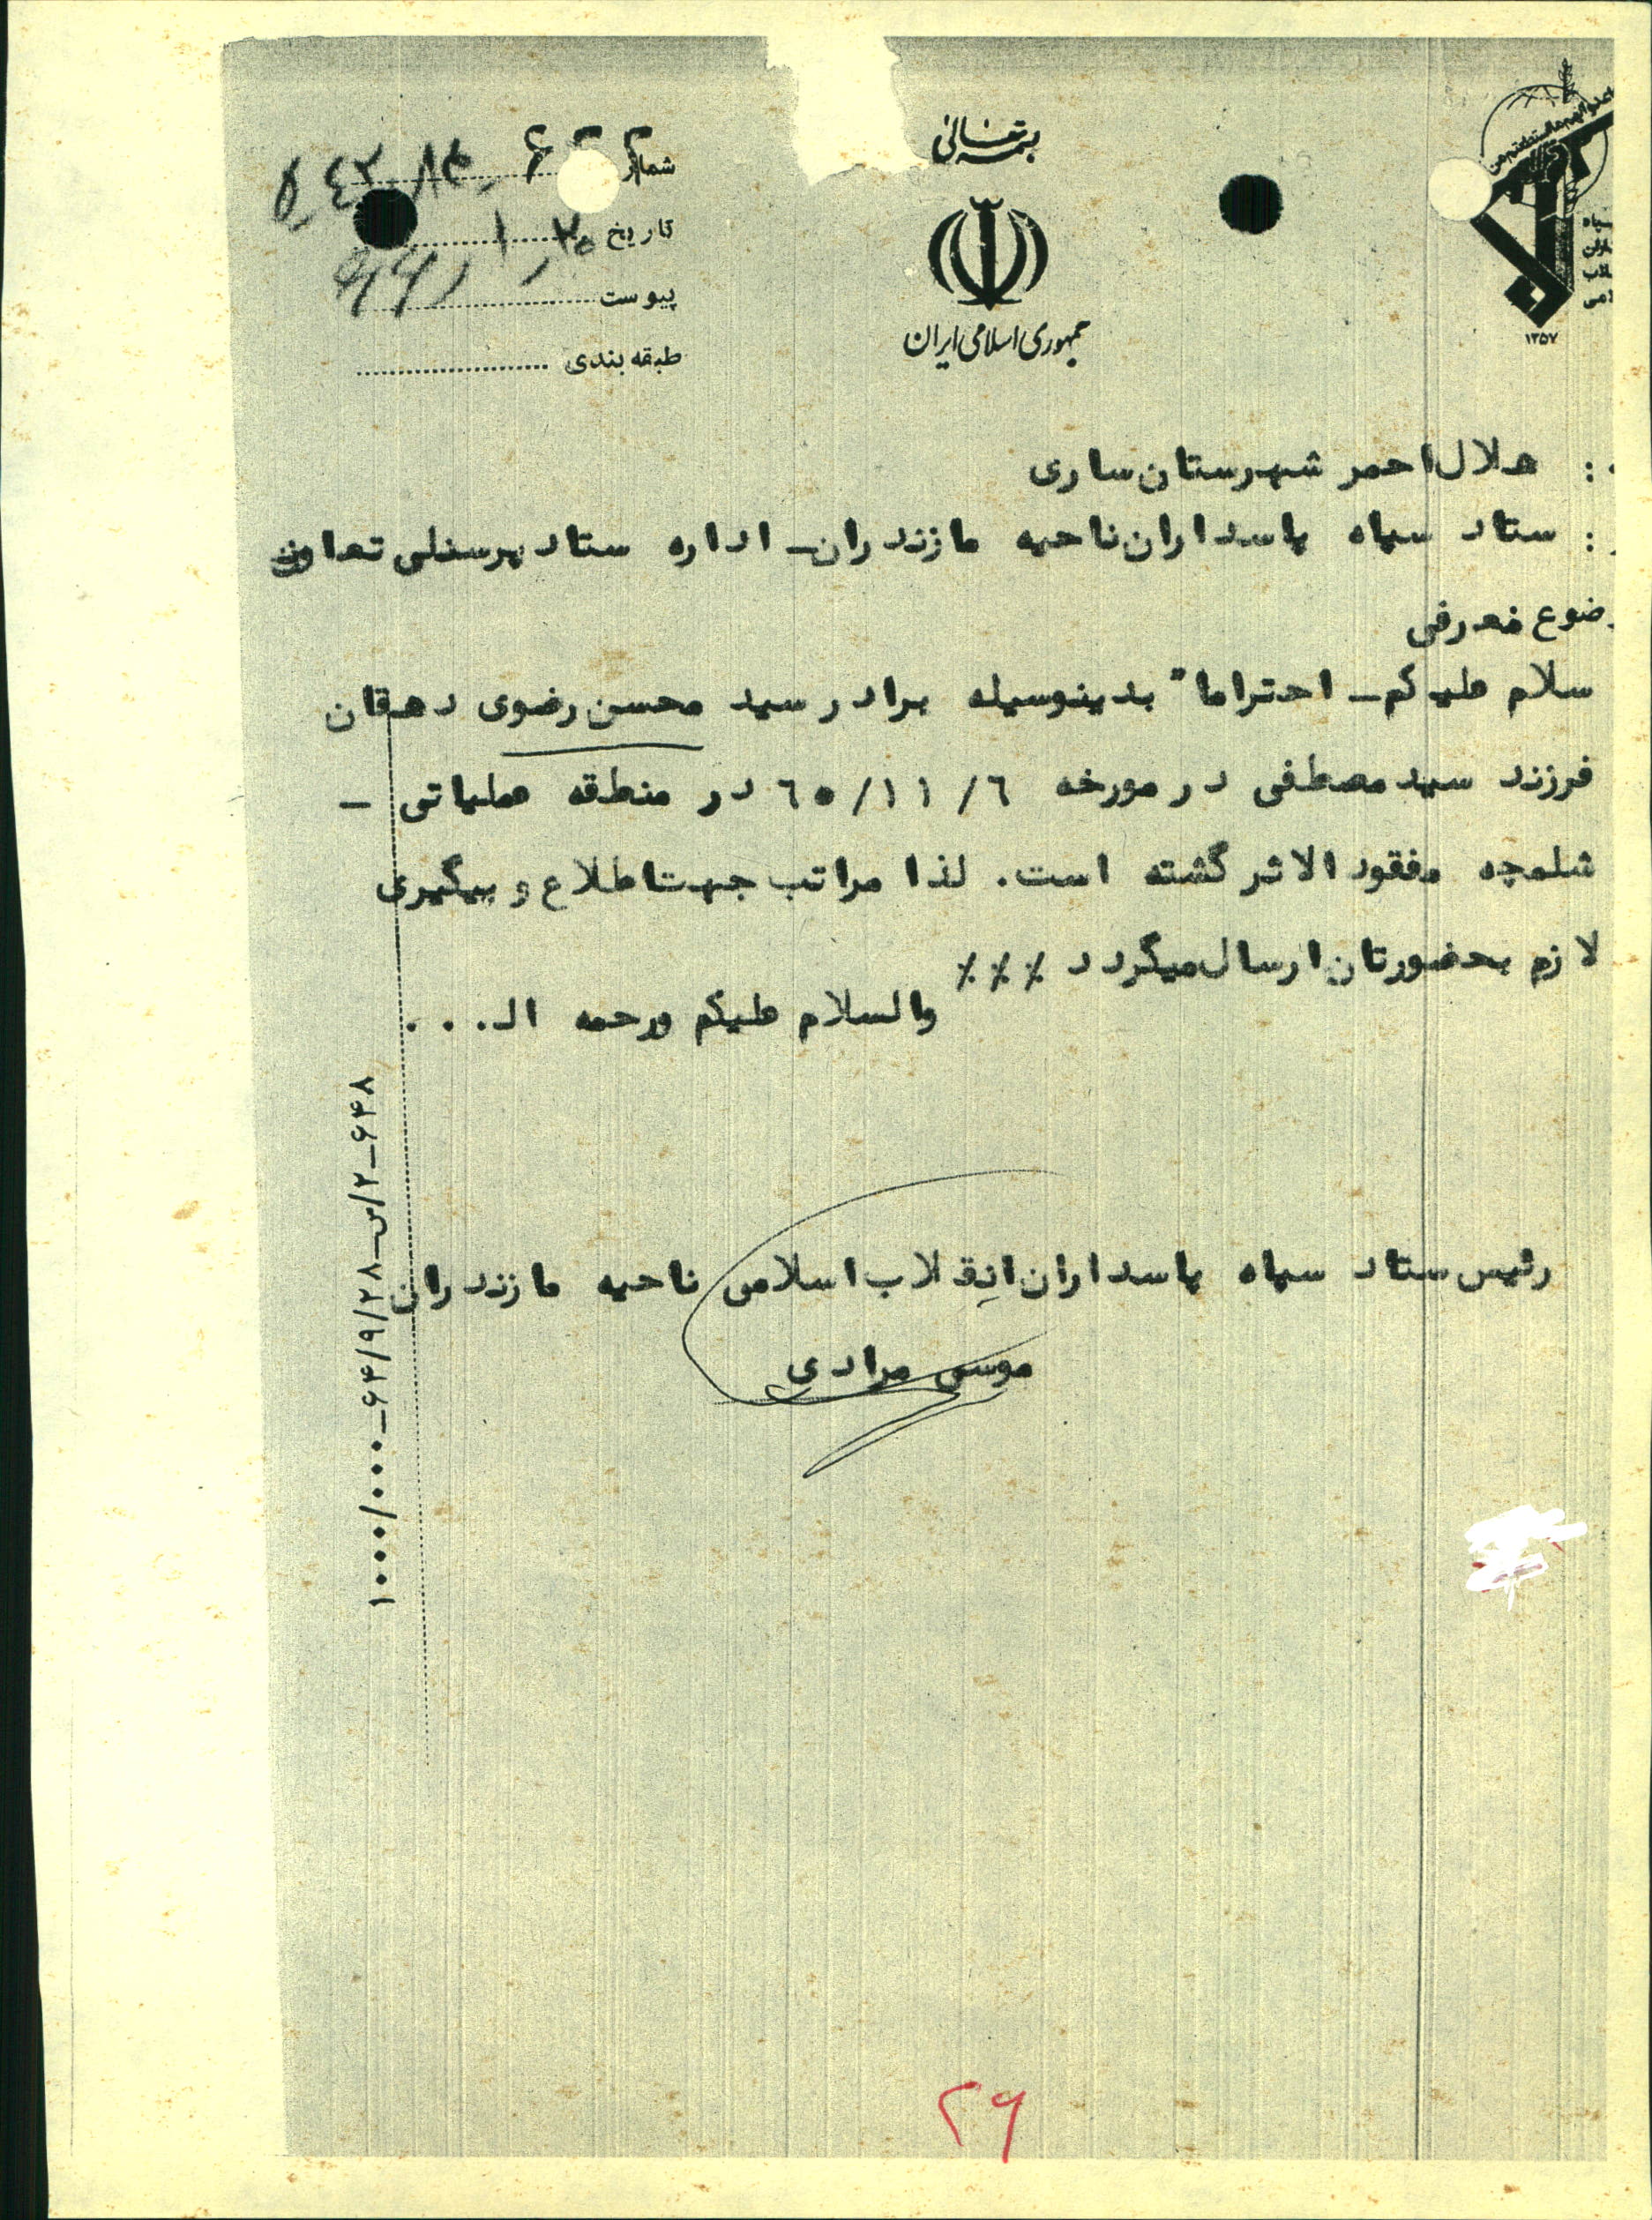 بسمه تعالی
جمهوری اسلامی ایران
۱۳۵۷
شماره
تاریخ ۲۰ ر ۱ ر ۶۶
پیوست
طبقه بندی
: هلال احمر شهرستان ساری
: ستاد سپاه پاسداران ناحیه مازندران ـ اداره ستاد پرسنلی تعاون
ضوع معرفی
سلام علیکم ـ احتراما" بدینوسیله برادر سید محسن رضوی دهقان
فرزند سید مصطفی در مورخه ٦٥/١١/٦ در منطقه عملیاتی ـ
شلمچه مفقود الاثر گشته است. لذا مراتب جهت اطلاع و پیگیری
لازم بحضورتان ارسال میگردد ٪٪٪
والسلام علیکم ورحمه الـ...
رئیس ستاد سپاه پاسداران انقلاب اسلامی ناحیه مازندران
موسی مرادی
۱۰۰۰/۰۰۰ـ۶۴/۹/۲۸ـس/۲ـ۶۴۸
۲۶